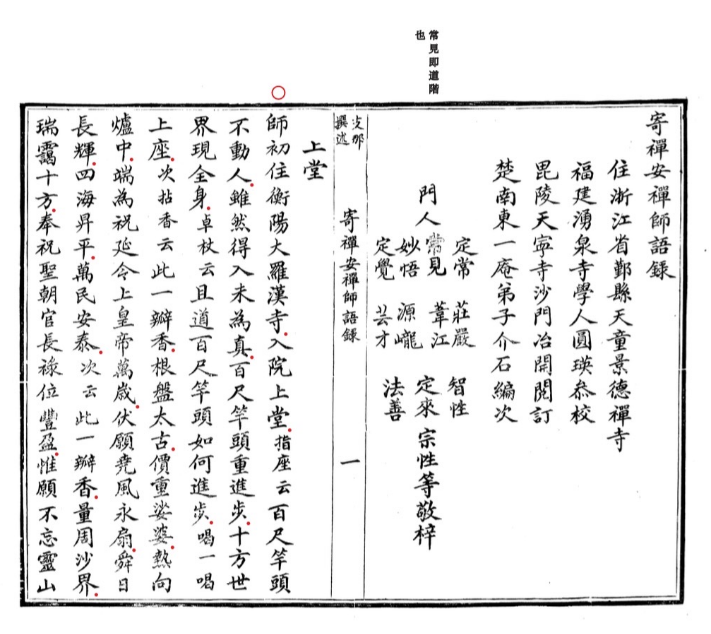 常見即道階
也
寄禪安禪師語錄
住浙江省鄞縣天童景德禪寺
福建湧泉寺學人圓瑛叅校
毘陵天寧寺沙門冶開閱訂
楚南東一庵弟子介石編次
定常 莊嚴 智性
門人常見 葦江 定來宗性等敬梓
妙悟 源巃
定覺 芸才 法善
支那
撰述
寄禪安禪師語錄 一
上堂
師初住衡陽大羅漢寺入院上堂指座云百尺竿頭
不動人雖然得入未為真百尺竿頭重進步十方世
界現全身卓杖云且道百尺竿頭如何進步喝一喝
上座次拈香云此一瓣香根盤太古價重娑婆熱向
爐中端為祝延今上皇帝萬歲伏願堯風永扇舜日
長輝四海昇平萬民安泰次云此一瓣香量周沙界
瑞靄十方奉祝聖朝官長祿位豐盈惟願不忘靈山